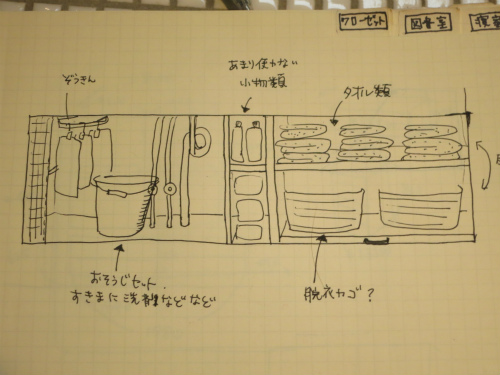 クローゼット
図書室
ぞうきん
あまり使わない
小物類
タオル類
おそうじセット.
すきまに洗剤などなど
脱衣カゴ?